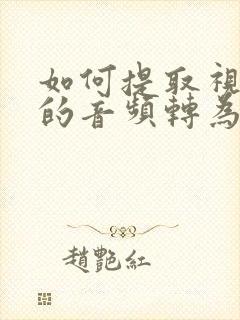 如何提取視
的音頻轉為
趙艷紅